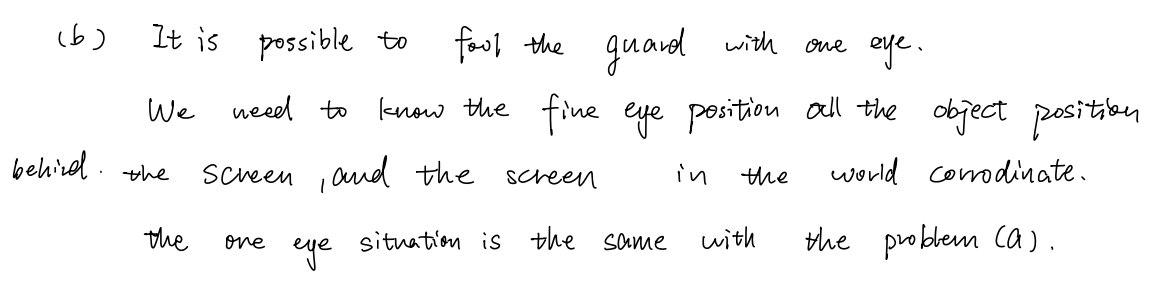 (b) It is possible to fool the guard with one eye.
We need to know the fine eye position all the object position
behind. the screen, and the screen in the world corrodinate.
the one eye situation is the same with the problem (a).